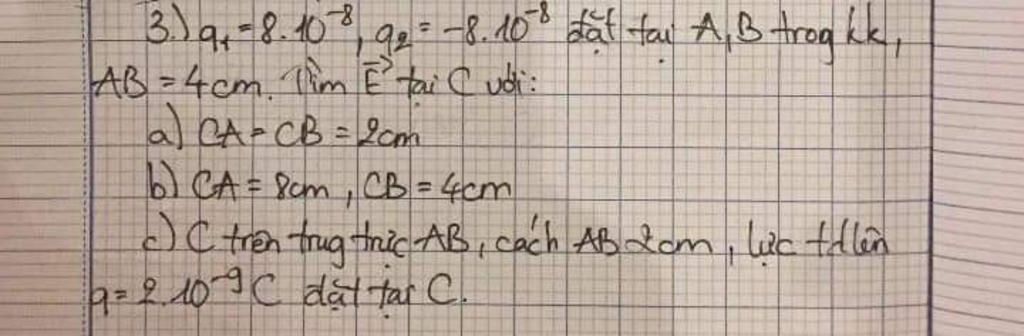 3.) q₁ = 8.10⁻⁸, q₂ = -8.10⁻⁸ đặt tại A, B trog kk,
AB = 4cm. Tìm E⃗ tại C với:
a) CA = CB = 2cm
b) CA = 8cm, CB = 4cm
c) C trên trug trực AB, cách AB 2cm, lực td lên
q = 2.10⁻⁹ C đặt tại C.